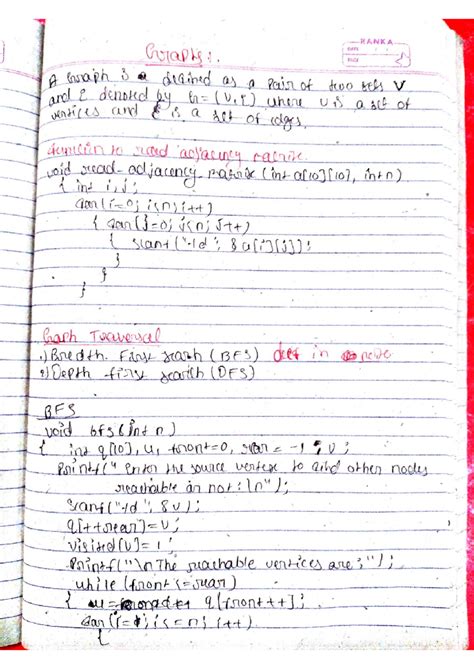 RANKA
DATE
PAGE
Graphs:.
A Graph is a defined as a pair of two sets V
and E denoted by G=(V,E) where V is a set of
vertices and E is a set of edges.
function to read adjacency matrix
void read-adjacency-matrix (int a[10][10], int n)
{ int i,j;
for(i=0; i<n; i++)
{ for(j=0; j<n; j++)
{ scanf("%d", &a[i][j]);
}
}
}
Graph Traversal
1) Breadth First search (BFS) in
2) Depth first search (DFS)
BFS
void bfs(int n)
{ int q[10], u, front=0, rear = -1, v;
Printf(" Enter the source vertex to find other nodes
reachable or not: \n");
scanf("%d", &v);
q[++rear]=v;
visited[v]=1;
Printf("\n The reachable vertices are: ");
while (front<=rear)
{ u= q[front++];
for(i= i<=n; i++)
{